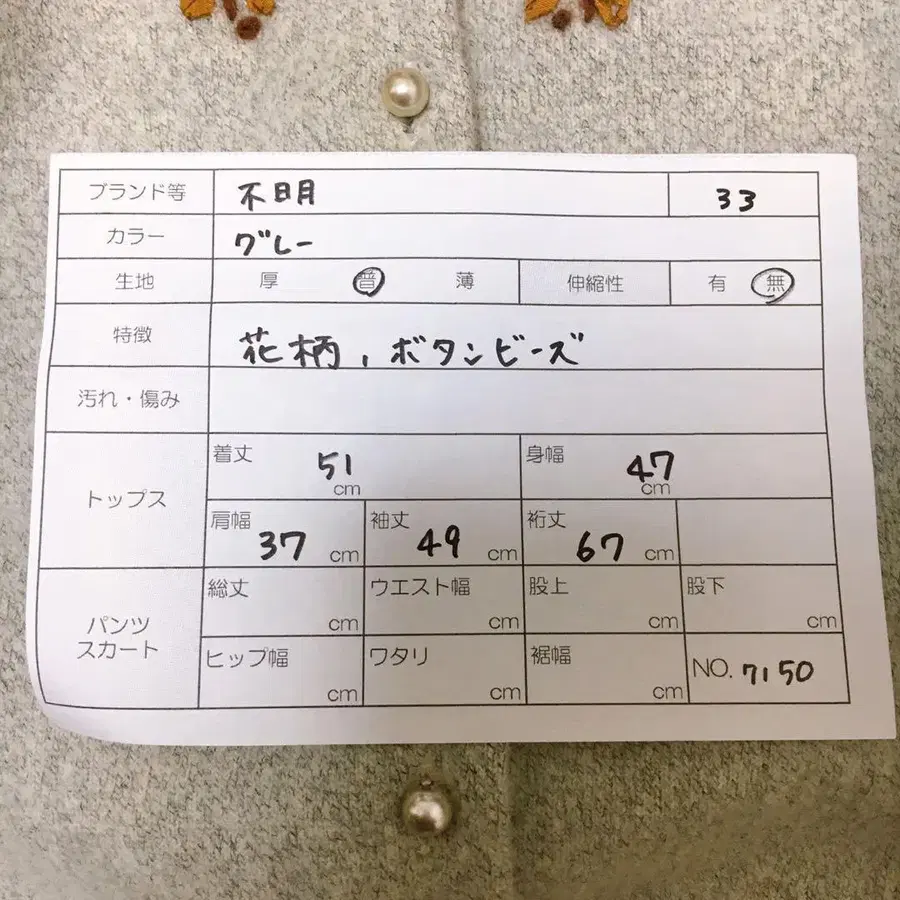 ブランド等 不明 33
カラー グレー
生地 厚 普 薄 伸縮性 有 無
特徴 花柄、ボタンビーズ
汚れ・傷み
トップス
着丈 51 cm 身幅 47 cm
肩幅 37 cm 袖丈 49 cm 裄丈 67 cm
パンツ
スカート
総丈 cm ウエスト幅 cm 股上 cm 股下 cm
ヒップ幅 cm ワタリ cm 裾幅 cm NO. 7150